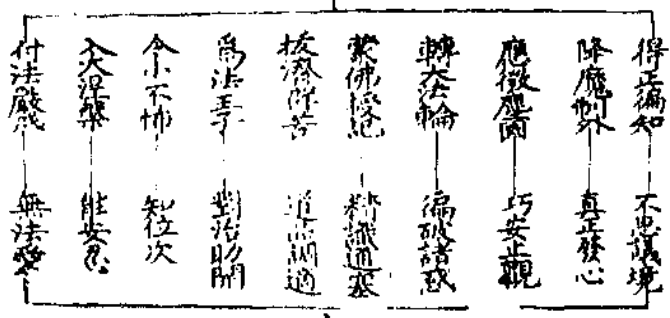 得正徧知
不思議境
降魔制外
真正發心
應微塵國
巧安止觀
轉大法輪
徧破諸惑
蒙佛授記
精識通塞
拔濟衆苦
道品調適
爲法王子
對治助開
令小不怖
知位次
入大涅槃
能安忍
付法
無法愛